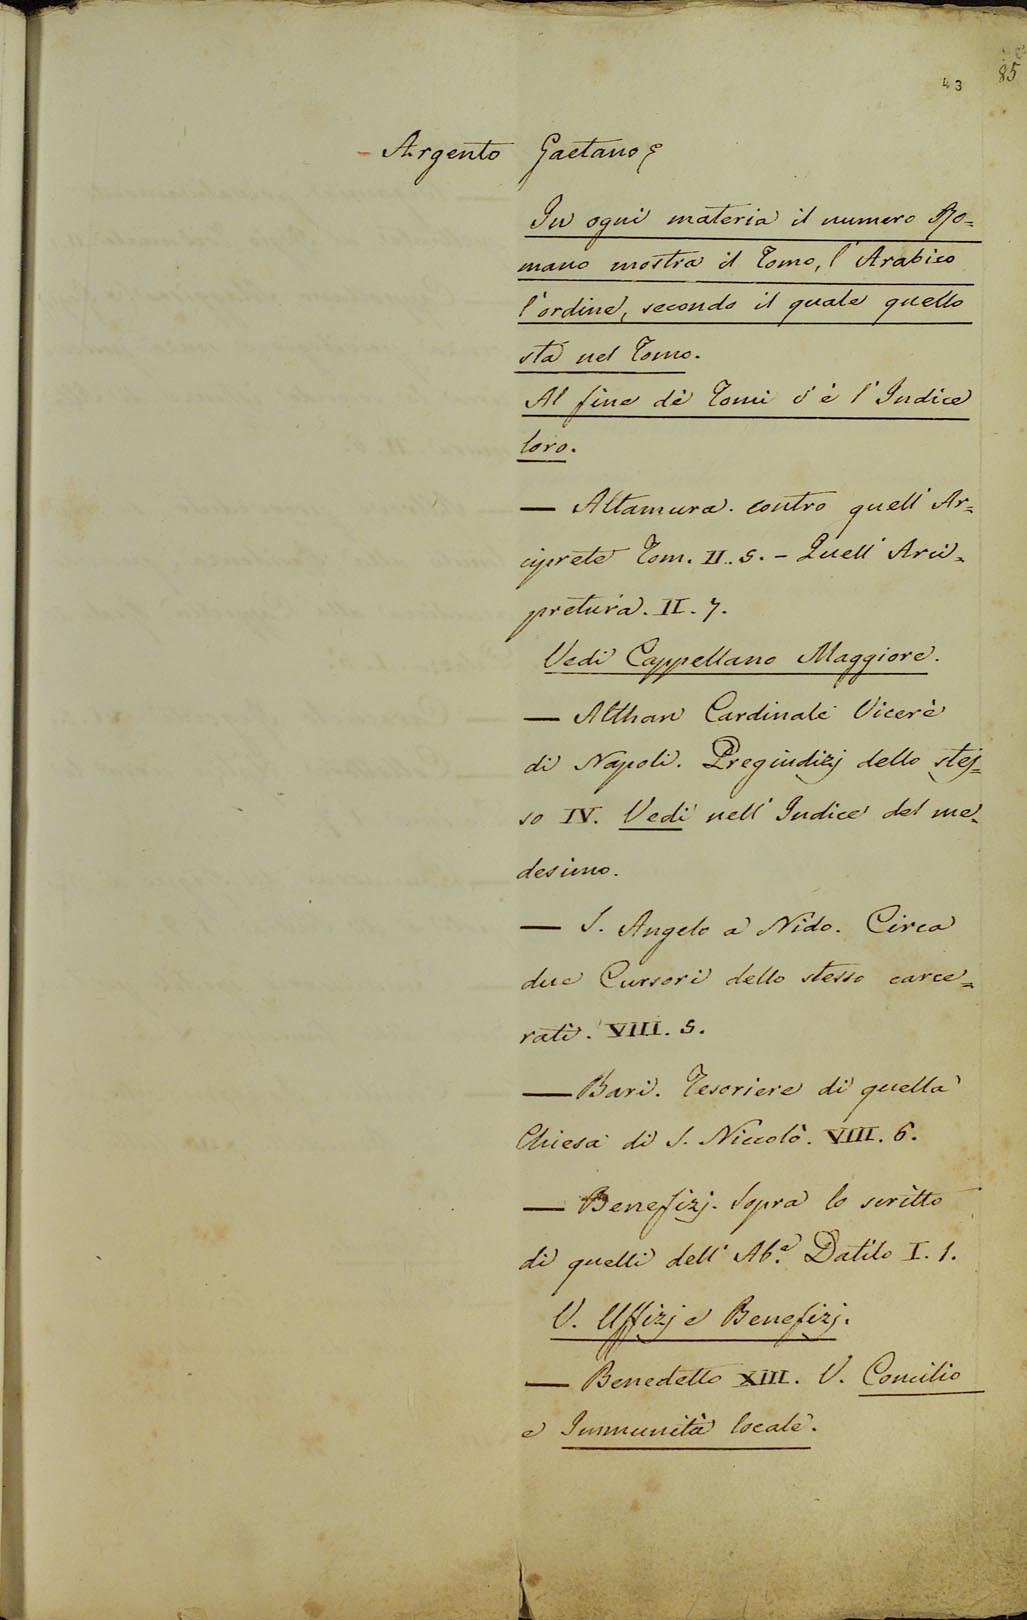 43
85
- Argento Gaetano
In ogni materia il numero Ro=
mano mostra il Tomo, l'Arabico
l'ordine, secondo il quale quello
stà nel Tomo.
Al fine dè Tomi v'è l'Indice
loro.
— Altamura. contro quell'Ar=
ciprete Tom. II. 5. - Quell'Arci=
pretura. II. 7.
Vedi Cappellano Maggiore.
— Althan Cardinale Vicerè
di Napoli. Pregiudizj dello stes=
so IV. Vedi nell'Indice del me=
desimo.
— S. Angelo a Nido. Circa
due Cursori dello stesso carce=
rati. VIII. 5.
— Bari. Tesoriere di quella
Chiesa di S. Niccolò. VIII. 6.
— Benefizj. Sopra lo scritto
di quelli dell'Ab.e Datilo I. 1.
V. Uffizj e Benefizj.
— Benedetto XIII. V. Concilio
e Immunità locale.